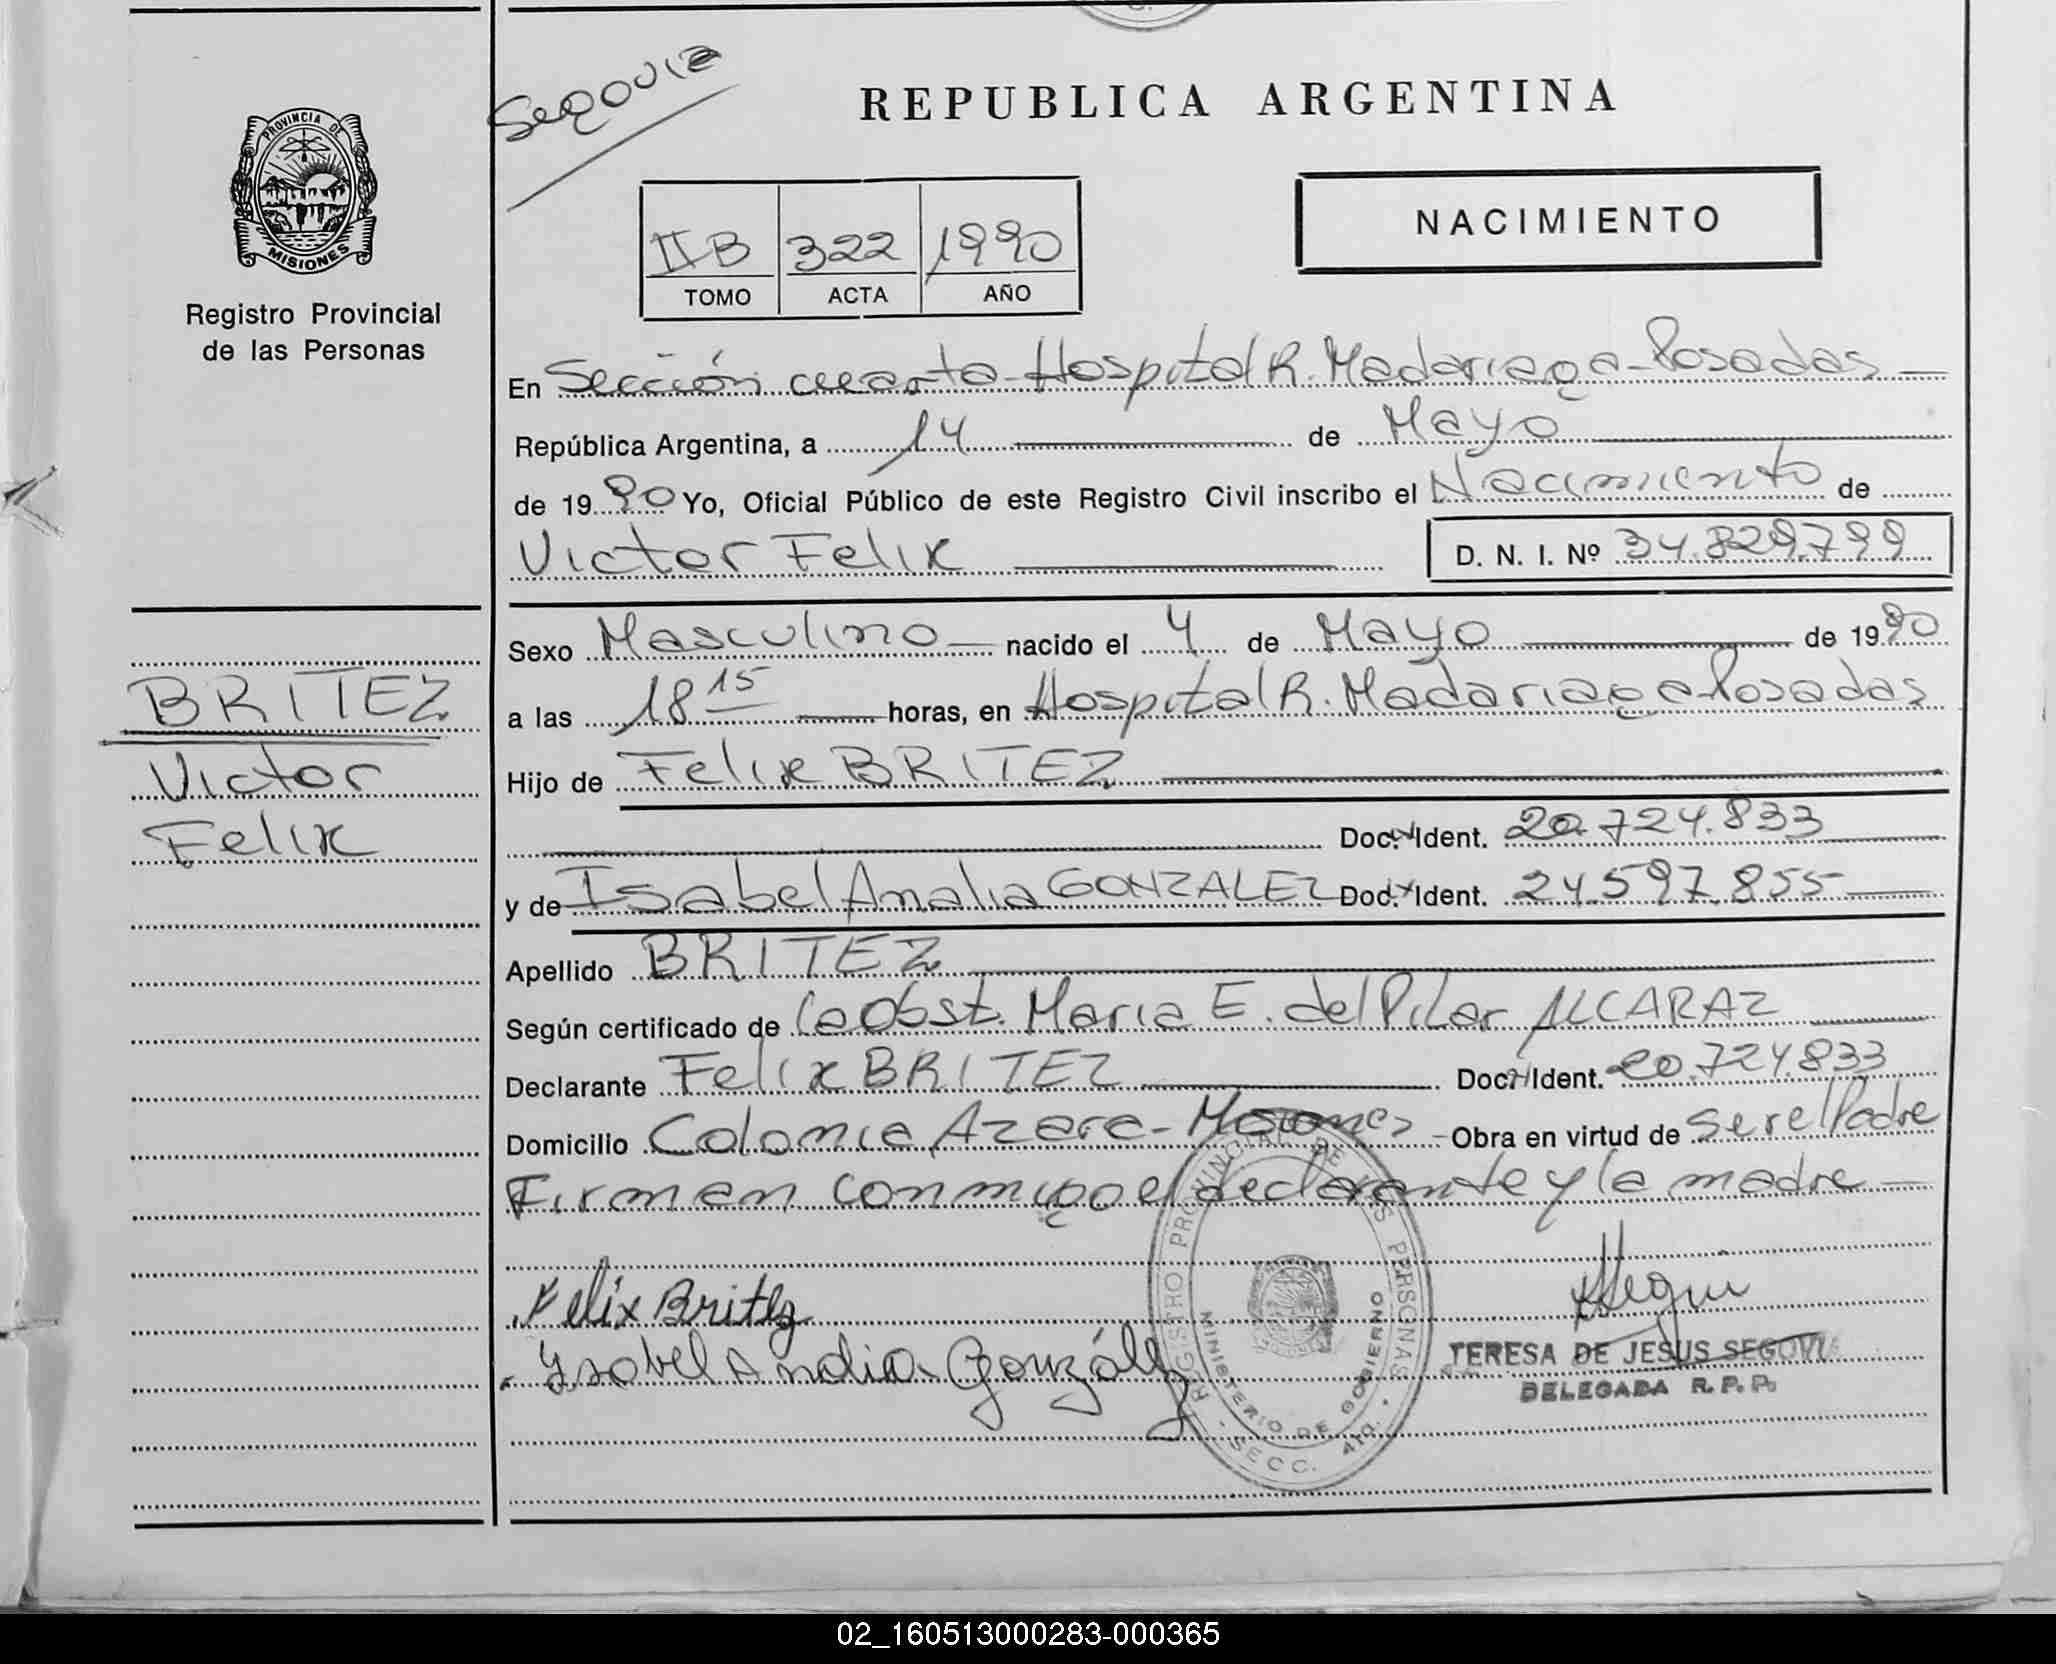 Segovia
REPUBLICA ARGENTINA
PROVINCIA DE
MISIONES
Registro Provincial
de las Personas
NACIMIENTO
II B 322 1990
TOMO ACTA AÑO
En Sección cuarta - Hospital R. Madariaga - Posadas
República Argentina, a 14 de Mayo
de 1990 Yo, Oficial Público de este Registro Civil inscribo el Nacimiento de
Victor Felix D. N. I. Nº 34.829.799
Sexo Masculino nacido el 4 de Mayo de 1990
a las 18 15 horas, en Hospital R. Madariaga Posadas
Hijo de Felix BRITEZ
Doc. Ident. 20.724.833
y de Isabel Analia GONZALEZ Doc. Ident. 24.597.855
Apellido BRITEZ
Según certificado de la Obst. Maria E. del Pilar ALCARAZ
Declarante Felix BRITEZ Doc. Ident. 20.724.833
Domicilio Colonia Azara - Misiones - Obra en virtud de ser el Padre
Firman conmigo el declarante y la madre
BRITEZ
Victor
Felix
Felix Britez
Isabel Analia González
REGISTRO PROVINCIAL DE LAS PERSONAS
MINISTERIO DE GOBIERNO
SECC. 4ta.
TERESA DE JESUS SEGOVIA
DELEGADA R. P. P.
02_160513000283-000365